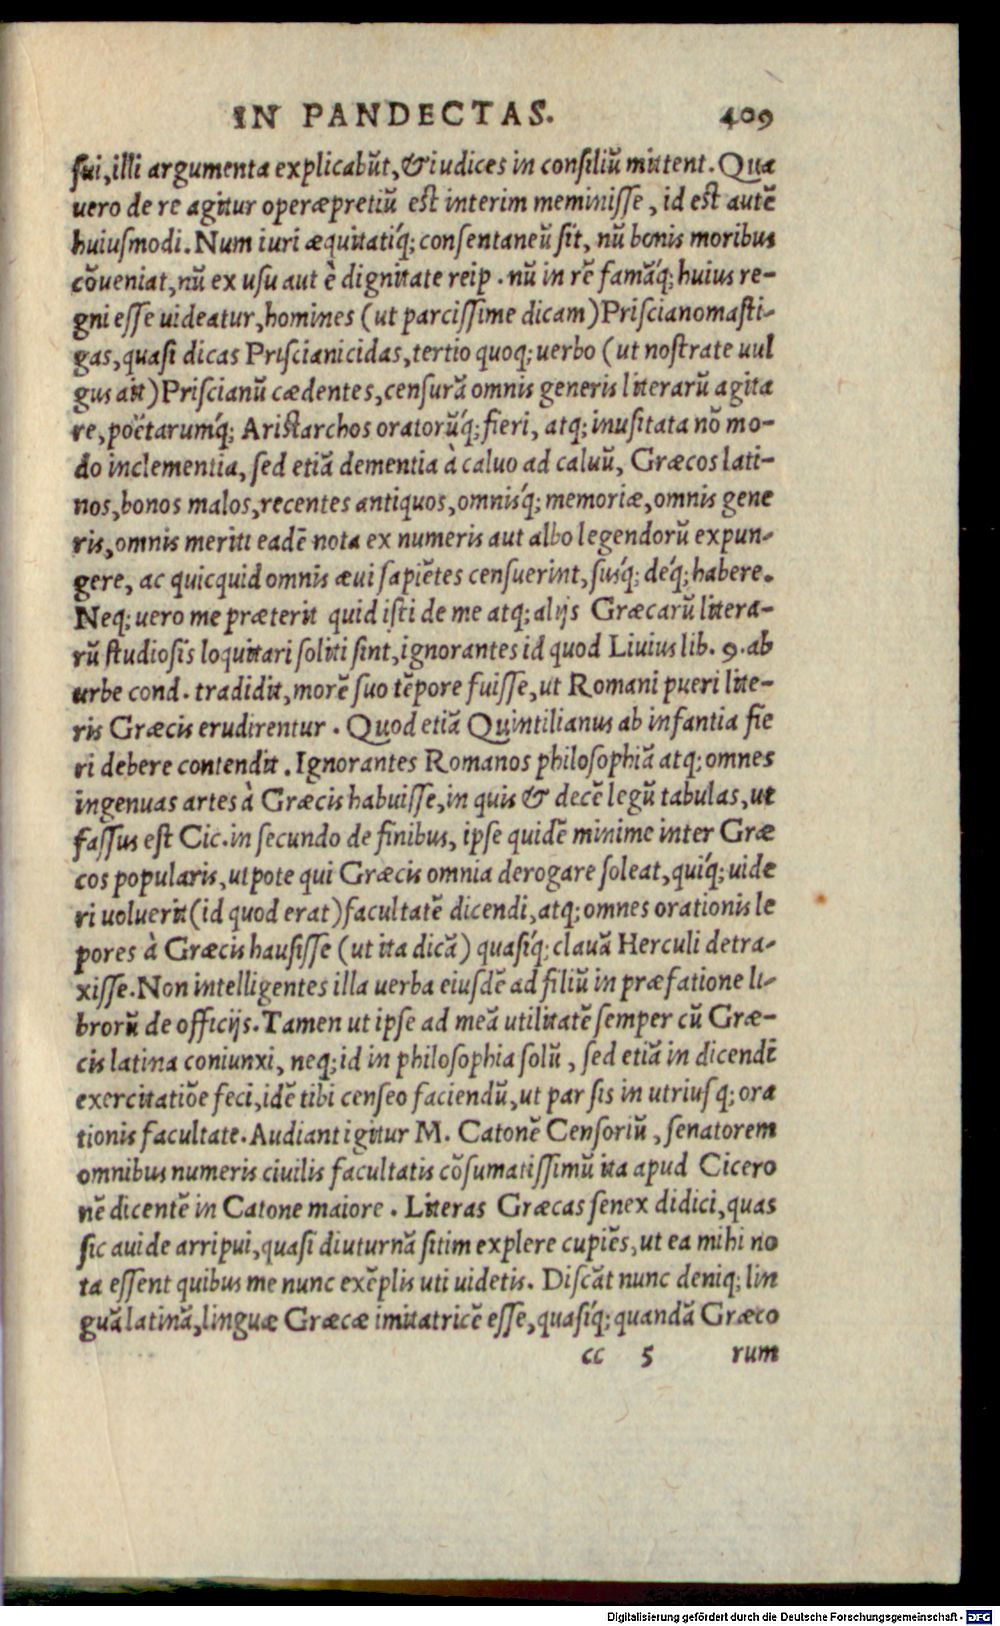 IN PANDECTAS. 409
sui, illi argumenta explicabūt, & iudices in consiliū mittent. Qua
vero de re agitur operæpretiū est interim meminisse, id est autē
huiusmodi. Num iuri æquitatiq́; consentaneū sit, nū bonis moribus
cōveniat, nū ex usu aut è dignitate reip. nū in rē famāq́; huius re-
gni esse uideatur, homines (ut parcissime dicam) Priscianomasti-
gas, quasi dicas Priscianicidas, tertio quoq; uerbo (ut nostrate uul
gus ait) Priscianū cædentes, censurā omnis generis literarū agita
re, poëtarumq́; Aristarchos oratorūq́; fieri, atq; inusitata nō mo-
do inclementia, sed etiā dementia à caluo ad caluū, Græcos lati-
nos, bonos malos, recentes antiquos, omnisq́; memoriæ, omnis gene
ris, omnis meriti eadē nota ex numeris aut albo legendorū expun-
gere, ac quicquid omnis æui sapiētes censuerint, susq́; deq́; habere.
Neq; uero me præterit quid isti de me atq; alijs Græcarū littera-
rū studiosis loquitari soliti sint, ignorantes id quod Livius lib. 9. ab
urbe cond. tradidit, morē suo tēpore fuisse, ut Romani pueri litte-
ris Græcis erudirentur. Quod etiā Quintilianus ab infantia fie
ri debere contendit. Ignorantes Romanos philosophiā atq; omnes
ingenuas artes à Græcis habuisse, in quis & decē legū tabulas, ut
fassus est Cic. in secundo de finibus, ipse quidē minime inter Græ
cos popularis, utpote qui Græcis omnia derogare soleat, quiq́; uide
ri uoluerit (id quod erat) facultatē dicendi, atq; omnes orationis le
pores à Græcis hausisse (ut ita dicā) quasiq́; clauā Herculi detra-
xisse. Non intelligentes illa uerba eiusdē ad filiū in præfatione li-
brorū de officijs. Tamen ut ipse ad meā utilitatē semper cū Græ-
cis latina coniunxi, neq; id in philosophia solū, sed etiā in dicendi
exercitatiōe feci, idē tibi censeo faciendū, ut par sis in utriusq; ora
tionis facultate. Audiant igitur M. Catonē Censoriū, senatorem
omnibus numeris ciuilis facultatis cōsumatissimū ita apud Cicero
nē dicentē in Catone maiore. Litteras Græcas senex didici, quas
sic auide arripui, quasi diuturnā sitim explere cupiēs, ut ea mihi no
ta essent quibus me nunc exēplis uti uidetis. Discāt nunc deniq; lin
guā latinā, linguæ Græcæ imitatricē esse, quasiq́; quandā Græco
cc 5 rum
Digitalisierung gefördert durch die Deutsche Forschungsgemeinschaft - DFG